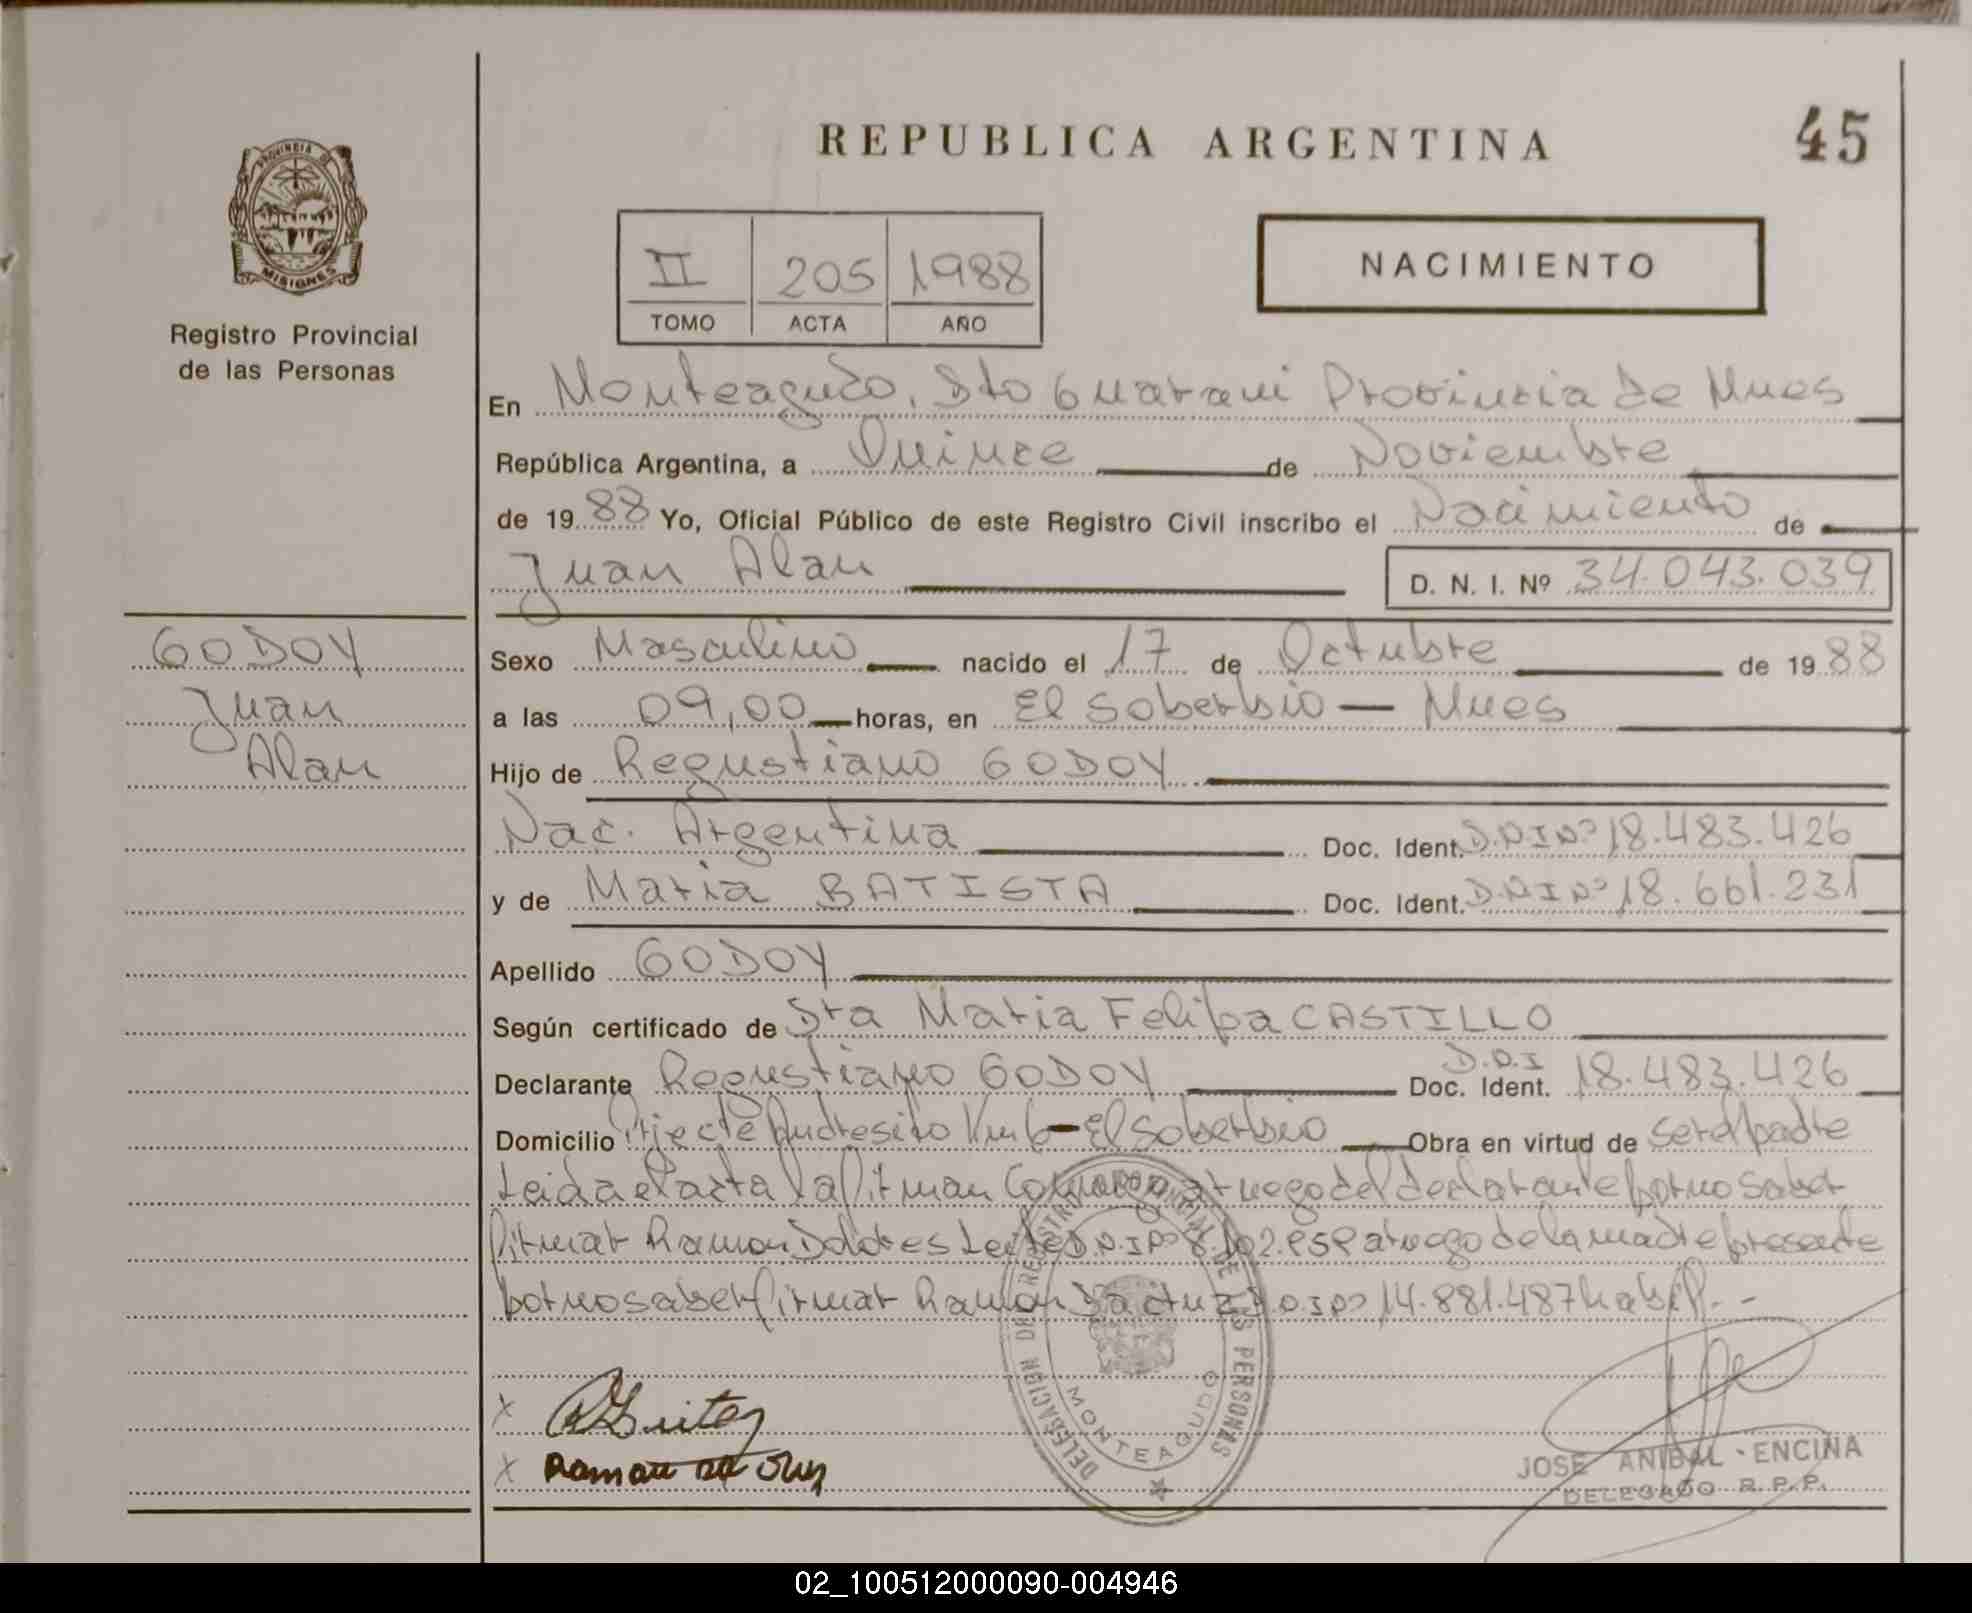 REPUBLICA ARGENTINA
45
PROVINCIA DE
MISIONES
Registro Provincial
de las Personas
II 205 1988
TOMO ACTA AÑO
NACIMIENTO
En Monteagudo, Dto Guarani Provincia de Mnes
República Argentina, a Quince de Noviembre
de 1988 Yo, Oficial Público de este Registro Civil inscribo el Nacimiento de
Juan Alan D. N. I. Nº 34.043.039
GODOY
Juan
Alan
Sexo Masculino nacido el 17 de Octubre de 1988
a las 09,00 horas, en El Soberbio — Mnes
Hijo de Regustiano GODOY
Nac. Argentina Doc. Ident. D.N.I Nº 18.483.426
y de Maria BATISTA Doc. Ident. D.N.I Nº 18.661.231
Apellido GODOY
Según certificado de Sra Maria Felipa CASTILLO
Declarante Regustiano GODOY Doc. Ident. D.N.I 18.483.426
Domicilio Andresito Km 6 — El Soberbio Obra en virtud de ser el padre
Leida el acta la firman a ruego del declarante por no saber
firmar Ramon Dolores D.N.I Nº a ruego de la madre presente
por no saber firmar Ramon Da Cruz D.N.I Nº 14.881.487
X
X Ramon da Cruz
DELEGACION DE REGISTRO PROVINCIAL DE LAS PERSONAS
MONTEAGUDO
JOSE ANIBAL ENCINA
DELEGADO R.P.P.
02_100512000090-004946